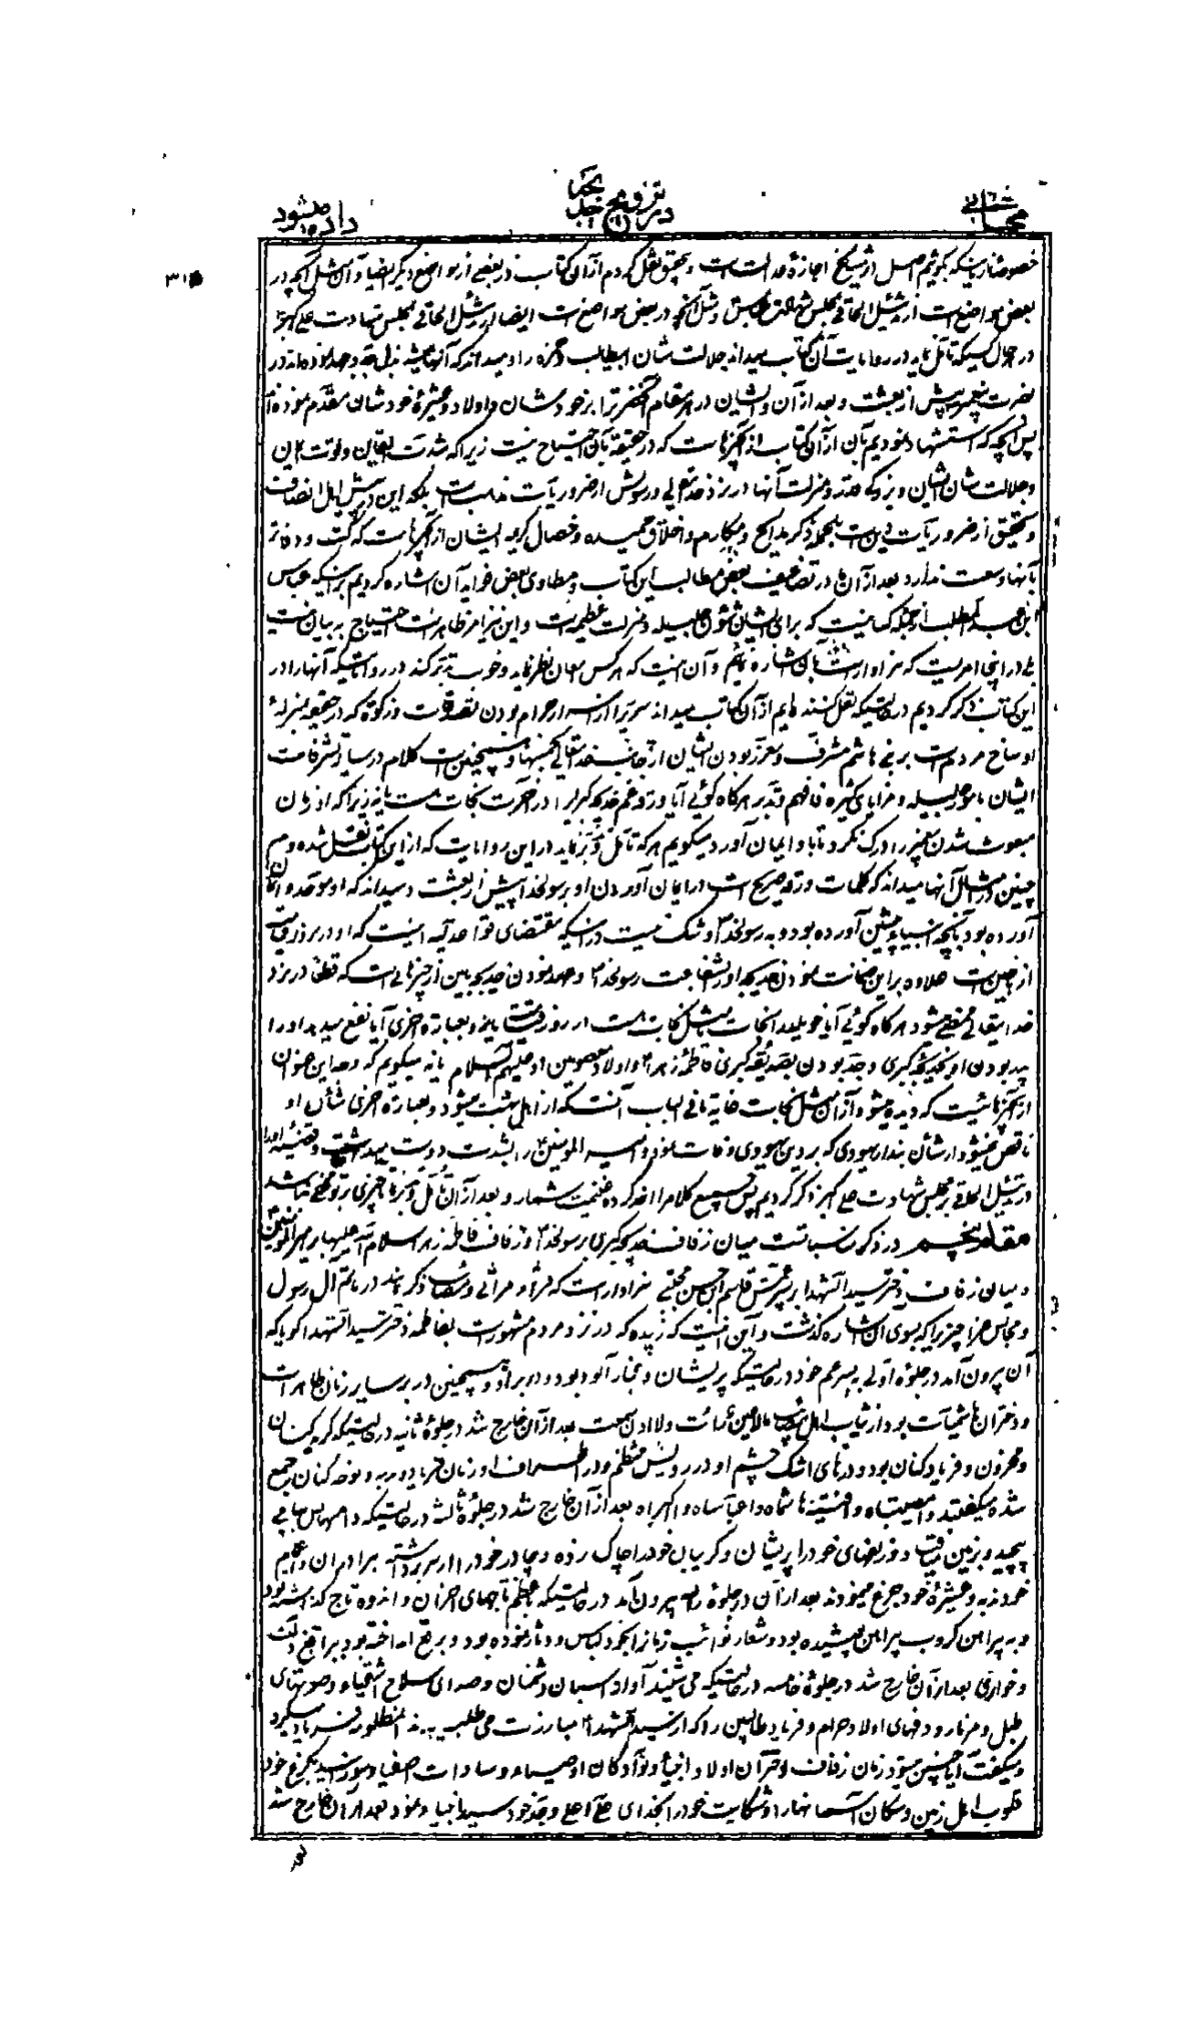 در تزویج خدیجه
داده میشود
۳۱۵
خصوصا اینکه بگوئیم اصل از شیخ اجازۀ عدالت است و بتحقیق نقل کردم از آن کتاب در بعضی از مواضع دیگر ایضا و آن مثل آنچه در
بعض مواضع است از تذئیل الحاقی مجلس و مثل آنچه در بعض مواضع است ایضا از تذئیل الحاقی مجلس شهادت علی اکبر
در حال کسیکه تأمل نماید در روایات آن کتاب میداند جلالت شان ابیطالب و حمزه را و میداند که آنها همیشه بذل جهد بوده‌اند در
نصرت پیغمبر پیش از بعثت و بعد از آن و ایشان در هر مقام آنحضرت را بر خودشان و اولاد و عشیرۀ خودشان مقدم نموده‌اند
پس آنچه که استشهاد نمودیم بآن از آن کتاب از چیزهاست که در حقیقة بآن احتیاج نیست زیرا که شدت یقین و قوت ایمان
و جلالت شان ایشان و بزرگی قدر و منزلت آنها در نزد خدایتعالی و رسولش از ضروریات مذهب است بلکه این در پیش اهل انصاف
و تحقیق از ضروریات دین است بالجمله ذکر مدایح و مکارم و اخلاق حمیده و خصال کریمه ایشان از چیزهاست که کتب و دفاتر
بآنها وسعت ندارد بعد از آن ما در تضاعیف بعض مطالب این کتاب و مطاوی بعض فواید آن اشاره کردیم بر اینکه عباس
ابن عبد المطلب از جمله کسانیست که برای ایشان شئون جلیله و منزلت عظیمه است و این نیز امر ظاهر است احتیاج به بیان نیست
بلی در اینجا امریست که سزاوار است بآن اشاره نمائیم و آن اینست که هر کس امعان نظر نماید و خوب تدبر کند در روایاتیکه آنها را در
این کتاب ذکر کردیم در حالتیکه نقل کننده‌ایم از آن کتاب میداند سری را از اسرار حرام بودن صدقات و زکوة که در حقیقة بمنزلۀ
اوساخ مردم است بر بنی هاشم مشرف و معزز بودن ایشان از جانب خدایتعالی بخمسها و همچنین است کلام در سیادت و شرافت
ایشان بامور جلیله و مزایای کثیره فافهم و تدبر هرگاه گوئی آیا ورقه عم خدیجه کبری را در آخرت نجات هست یا نه زیرا که او زمان
مبعوث شدن پیغمبر را درک نکرد تا باو ایمان آورد میگویم هر که تأمل و تدبر نماید در این روایات که از این کتاب نقل شده و هم
چنین در امثال آنها میداند که کلمات ورقه صریح است در ایمان آوردن او برسولخدا پیش از بعثت و میداند که او موحد و ایمان
آورده بود بآنچه انبیاء پیشین آورده بود و به رسولخدا و شک نیست در اینکه مقتضای قواعد آیه اینست که او در روز قیامت
از ناجین است علاوه بر این ضمانت نمودن خدیجه او را بشفاعت رسولخدا و عهد نمودن خدیجه باین از چیزهائی است که قطعا در نزد
خدایتعالی ممضی میشود هرگاه گوئی آیا خویلد را نجات یا مثل نجات هست در روز قیامت یا نه و بعبارة اخری آیا نفع میدهد او را
پدر بودن او بخدیجه کبری و جد بودن بصدیقه کبری فاطمۀ زهرا و اولاد معصومین او علیهم السلام یا نه میگویم که وصف این عنوان
از چیزهائیست که فهمیده میشود از آن مثل نجات غایة ما فی الباب آنست که از اهل بهشت میشود و بعبارة اخری شأن او
ناقص نمیشود از شأن بندار یهودی که بر دین یهودی وفات نمود و امیر المؤمنین را بشدت دوست میداشت و قضیۀ او را
در تذئیل الحاقی بر مجلس شهادت علی اکبر ذکر کردیم پس جمیع کلام را اخذ کرده غنیمت شمار و بعد از آن تأمل و تدبر نما چیزی بر تو مخفی نباشد
مقام پنجم در ذکر مناسبات است میان زفاف خدیجه کبری برسولخدا و زفاف فاطمه زهرا سلام الله علیها بامیر المؤمنین
و میان زفاف دختر سید الشهدا بر پسر عمش قاسم ابن حسن مجتبی سزاوار است که قراء و مراثی و مصائب ذکر نمایند در ماتم آل رسول
و مجالس عزا چیزیرا که بسوی آن اشاره گذشت و آن اینست که زبیده که در نزد مردم مشهور است بفاطمه دختر سید الشهدا گویا که
آن بیرون آمد در جلوۀ اولی به پسر عم خود در حالتیکه پریشان و غبار آلود بود و همچنین در بر سایر زنان طاهرات
و دختران هاشمیات بود از ثیاب اهل مصائب ما لا عین رأت و لا اذن سمعت بعد از آن خارج شد در جلوۀ ثانیه در حالتیکه گریه کنان
و محزون و فریاد کنان بود و درهای اشک چشم او در رویش منتظم و در اطراف او زنان فریاد و ندبه و نوحه کنان جمع
شده میگفتند وا مصیبتاه وا حسیناه وا محمداه وا عباساه وا اکبراه بعد از آن خارج شد در جلوۀ ثالثه در حالتیکه دامهاش بپایش
پیچید و بزمین میافتاد و زلفهای خود را پریشان و گریبان خود را چاک زده و چادر خود را از سر برداشته برادران و اعمام
خود ندبه و عشیرۀ خود جزع مینمود بعد از آن در جلوۀ رابعه بیرون آمد در حالتیکه بعظیم تاجهای احزان و اندوه تاج گذاشته بود
و به پیراهن کروب پیراهن پوشیده بود و شعار نوائب زمانرا بخود لباس و دثار نموده بود و برقع انداخته بود ببراقع ذلت
و خواری بعد از آن خارج شد در جلوۀ خامسه در حالتیکه می شنید آواز اسبان دشمنان و صدای سلاح اشقیاء و صوتهای
طبل و مزمار و دفهای اولاد حرام و فریاد طالبین را که از سید الشهدا مبارزت می طلبید پدر المظلوم فریاد میکرد
و میگفت آیا چنین میشود زمان زفاف دختران اولاد انبیاء و نوادگان اوصیاء و سادات اصفیاء و سوزانید بجزع خود
قلوب اهل زمین و سکان آسمانها را و شکایت خود را بخدای علی اعلی و جد خود سید انبیا نمود بعد از آن خارج شد